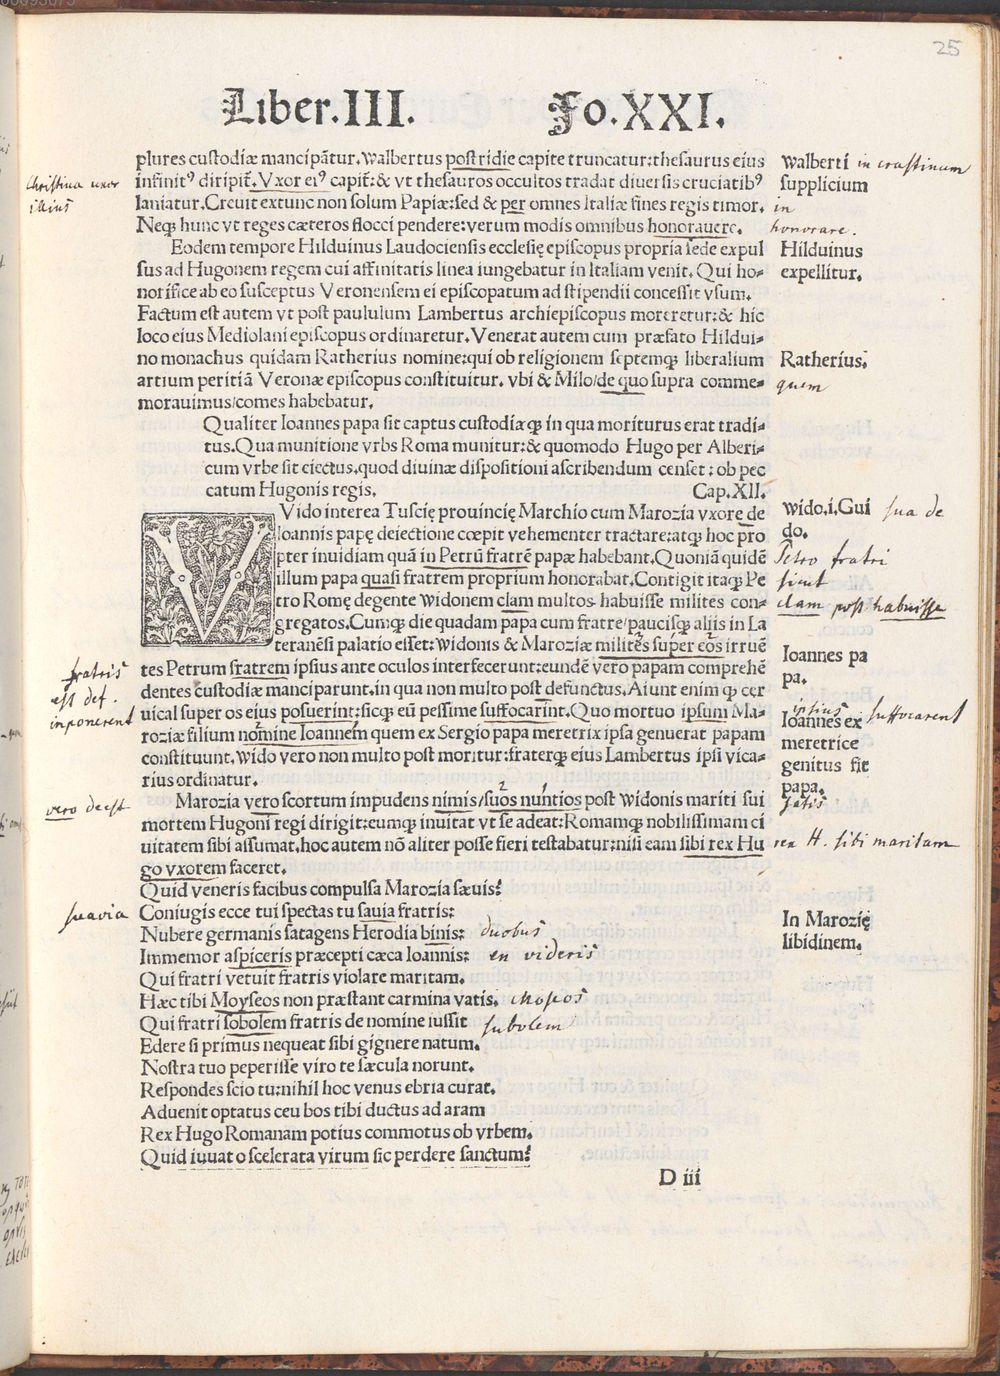 25
Liber.III. Fo.XXI.
plures custodiæ mancipātur.Walbertus postridie capite truncatur:thesaurus eius
infinitꝰ diripit̃. Vxor eiꝰ capit̃:& vt thesauros occultos tradat diuersis cruciatibꝰ
laniatur.Creuit extunc non solum Papiæ:sed & per omnes Italiæ fines regis timor.
Neqꝫ hunc vt reges cæteros flocci pendere:verum modis omnibus honorauere.
Walberti
supplicium
in crastinum
in
honorare.
Christina uxor
illius
Eodem tempore Hilduinus Laudociensis ecclesię episcopus propria sede expul
sus ad Hugonem regem cui affinitatis linea iungebatur in Italiam venit. Qui ho⸗
norifice ab eo susceptus Veronensem ei episcopatum ad stipendii concessit vsum.
Factum est autem vt post paululum Lambertus archiepiscopus moreretur:& hic
loco eius Mediolani episcopus ordinaretur.Venerat autem cum præfato Hildui⸗
no monachus quidam Ratherius nomine:qui ob religionem septemqꝫ liberalium
artium peritiā Veronæ episcopus constituitur. vbi & Milo/de quo supra comme⸗
morauimus/comes habebatur.
Hilduinus
expellitur.
Ratherius.
quem
Qualiter Ioannes papa sit captus custodiæqꝫ in qua moriturus erat tradi⸗
tus.Qua munitione vrbs Roma munitur:& quomodo Hugo per Alberi⸗
cum vrbe sit eiectus,quod diuinæ dispositioni ascribendum censet : ob pec
catum Hugonis regis. Cap.XII.
Vido interea Tuscię prouincię Marchio cum Marozia vxore de
Ioannis papę deiectione cœpit vehementer tractare:atqꝫ hoc pro
pter inuidiam quā in Petrū fratrē papæ habebant.Quoniā quidē
illum papa quasi fratrem proprium honorabat.Contigit itaqꝫ Pe
tro Romę degente Widonem clam multos habuisse milites con⸗
gregatos.Cumqꝫ die quadam papa cum fratre/paucisqꝫ aliis in La
teranēsi palatio esset:Widonis & Maroziæ militēs super eos irruē
tes Petrum fratrem ipsius ante oculos interfecerunt:eundē vero papam comprehē
dentes custodiæ manciparunt.in qua non multo post defunctus.Aiunt enim qꝫ cer
uical super os eius posuerint:sicqꝫ eū pessime suffocarint.Quo mortuo ipsum Ma⸗
roziæ filium nomine Ioannem quem ex Sergio papa meretrix ipsa genuerat papam
constituunt.Wido vero non multo post moritur:fraterqꝫ eius Lambertus ipsi vica⸗
rius ordinatur.
Wido.i.Gui
do.
sua de
Petro fratri
sicut
clam post habuisse
Ioannes pa
pa.
ipsius
suffocarent
Ioannes ex
meretrice
genitus fit
papa.
fratris
est def.
inponerent
Marozia vero scortum impudens nimis/suos nuntios post Widonis mariti sui
mortem Hugoni regi dirigit:eumqꝫ inuitat vt se adeat:Romamqꝫ nobilissimam ci
uitatem sibi assumat.hoc autem nō aliter posse fieri testabatur:nisi eam sibi rex Hu
go vxorem faceret.
satis
rex H. sibi maritam
vero deest
Quid veneris facibus compulsa Marozia sæuis?
Coniugis ecce tui spectas tu sauia fratris:
Nubere germanis satagens Herodia binis: duobus
Immemor aspiceris præcepti cæca Ioannis: en videris
Qui fratri vetuit fratris violare maritam.
Hæc tibi Moyseos non præstant carmina vatis. Moseos
Qui fratri sobolem fratris de nomine iussit subolem
Edere si primus nequeat sibi gignere natum.
Nostra tuo peperisse viro te sæcula norunt.
Respondes scio tu:nihil hoc venus ebria curat.
Aduenit optatus ceu bos tibi ductus ad aram
Rex Hugo Romanam potius commotus ob vrbem.
Quid iuuat o scelerata virum sic perdere sanctum?
suavia
In Marozię
libidinem.
D iii